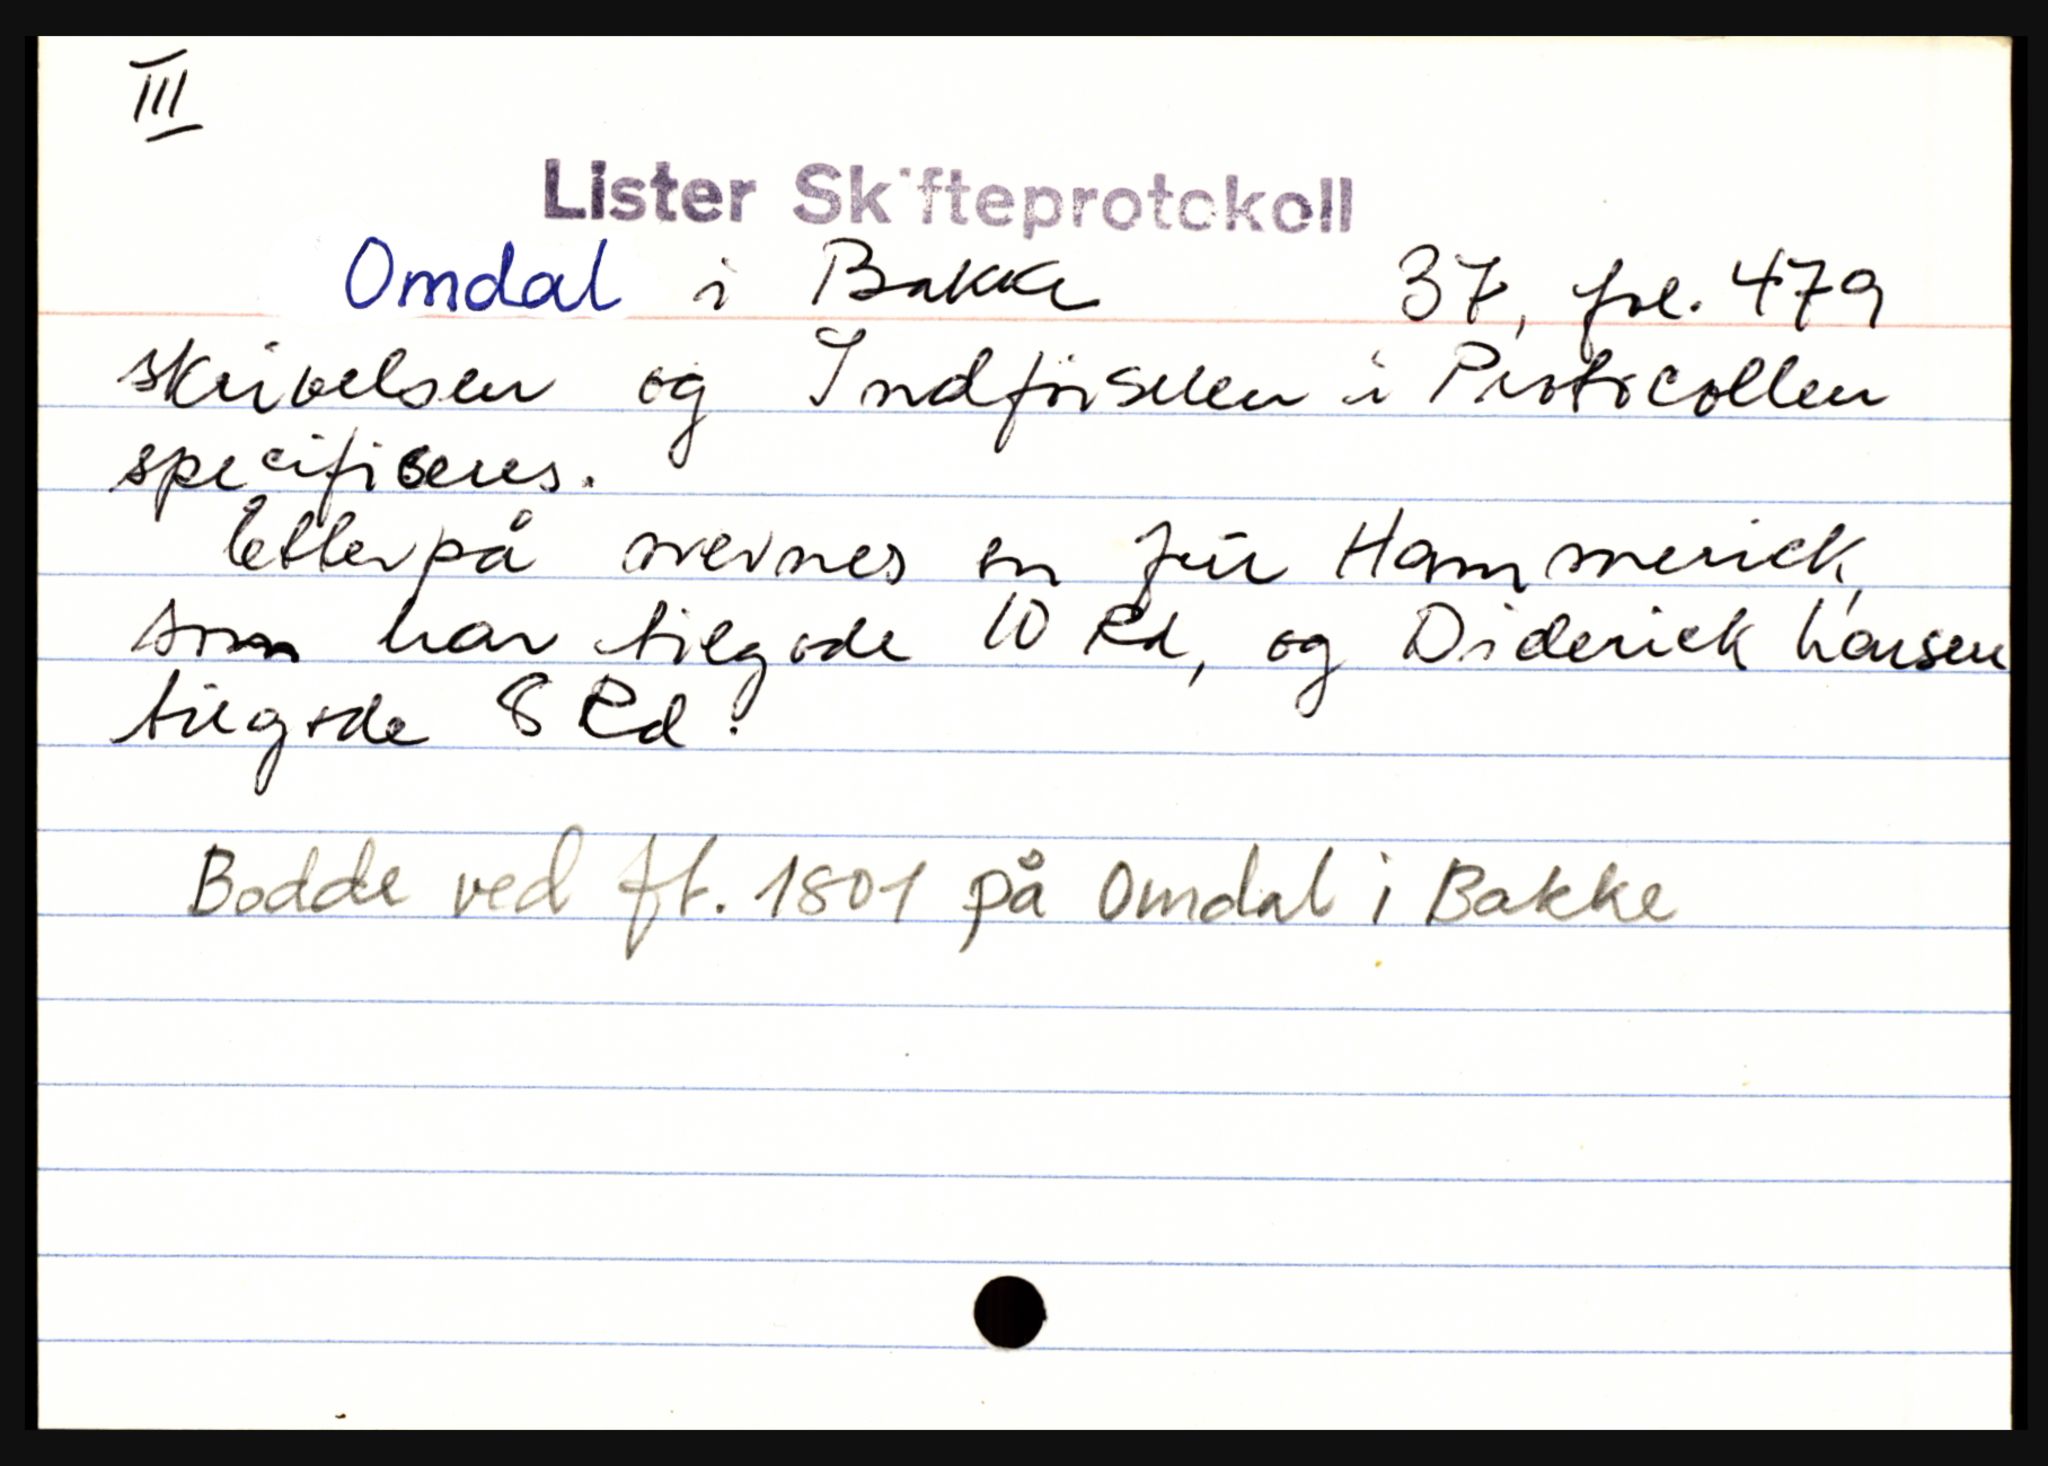 III
Lister Skifteprotokoll
Omdal i Bakke 37, fol. 479
skrivelsen og Indførselen i Protocollen
specificeres.
Etterpå nevnes en jür Hammerick,
som har tilgode 10 Rd, og Diderick Larsen
tilgode 8 Rd.
Bodde ved ft. 1801 på Omdal i Bakke